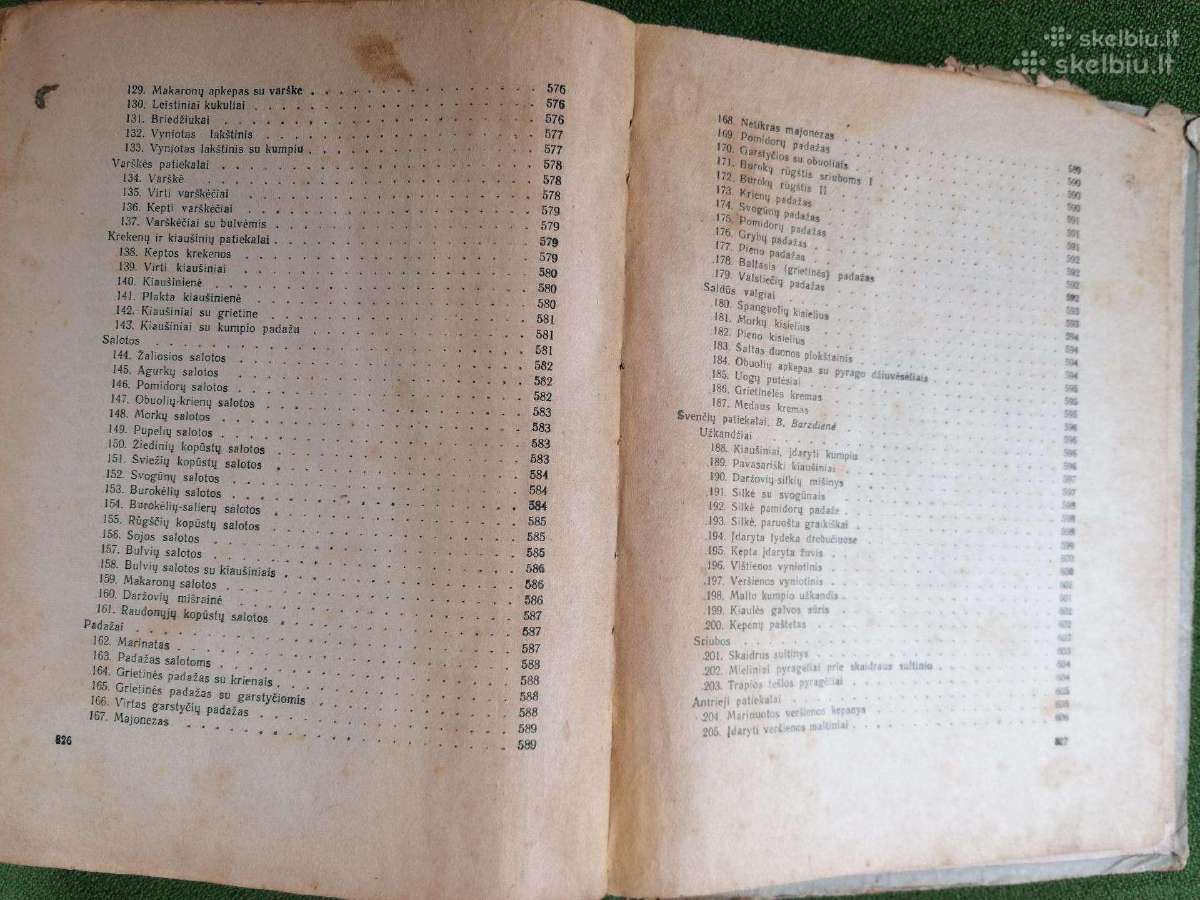 skelbiu.lt
skelbiu.lt
129. Makaronų apkepas su varške 576
130. Leistiniai kukuliai 576
131. Briedžiukai 576
132. Vyniotas lakštinis 577
133. Vyniotas lakštinis su kumpiu 577
Varškės patiekalai 578
134. Varškė 578
135. Virti varškėčiai 578
136. Kepti varškėčiai 579
137. Varškėčiai su bulvėmis 579
Krekenų ir kiaušinių patiekalai 579
138. Keptos krekenos 579
139. Virti kiaušiniai 580
140. Kiaušinienė 580
141. Plakta kiaušinienė 580
142. Kiaušiniai su grietine 581
143. Kiaušiniai su kumpio padažu 581
Salotos 581
144. Žaliosios salotos 582
145. Agurkų salotos 582
146. Pomidorų salotos 582
147. Obuolių-krienų salotos 583
148. Morkų salotos 583
149. Pupelių salotos 583
150. Žiedinių kopūstų salotos 583
151. Šviežių kopūstų salotos 584
152. Svogūnų salotos 584
153. Burokėlių salotos 584
154. Burokėlių-salierų salotos 585
155. Rūgščių kopūstų salotos 585
156. Sojos salotos 585
157. Bulvių salotos 586
158. Bulvių salotos su kiaušiniais 586
159. Makaronų salotos 586
160. Daržovių mišrainė 587
161. Raudonųjų kopūstų salotos 587
Padažai 587
162. Marinatas 588
163. Padažas salotoms 588
164. Grietinės padažas su krienais 588
165. Grietinės padažas su garstyčiomis 588
166. Virtas garstyčių padažas 589
167. Majonezas 589
826
168. Netikras majonezas
169. Pomidorų padažas
170. Garstyčios su obuoliais
171. Burokų rūgštis sriuboms I
172. Burokų rūgštis II
173. Krienų padažas
174. Svogūnų padažas
175. Pomidorų padažas
176. Grybų padažas
177. Pieno padažas
178. Baltasis (grietinės) padažas
179. Valstiečių padažas
Saldūs valgiai
180. Spanguolių kisielius
181. Morkų kisielius
182. Pieno kisielius
183. Šaltas duonos plokštainis
184. Obuolių apkepas su pyrago džiuvėsėliais
185. Uogų putėsiai
186. Grietinėlės kremas
187. Medaus kremas
Švenčių patiekalai. B. Barzdienė
Užkandžiai
188. Kiaušiniai, įdaryti kumpiu
189. Pavasariški kiaušiniai
190. Daržovių-silkių mišinys
191. Silkė su svogūnais
192. Silkė pomidorų padaže
193. Silkė, paruošta graikiškai
194. Įdaryta lydeka drebučiuose
195. Kepta įdaryta žuvis
196. Vištienos vyniotinis
197. Veršienos vyniotinis
198. Malto kumpio užkandis
199. Kiaulės galvos sūris
200. Kepenų paštetas
Sriubos
201. Skaidrus sultinys
202. Mieliniai pyragėliai prie skaidraus sultinio
203. Trapios tešlos pyragėliai
Antrieji patiekalai
204. Marinuotos veršienos kepsnys
205. Įdaryti veršienos maltiniai
827